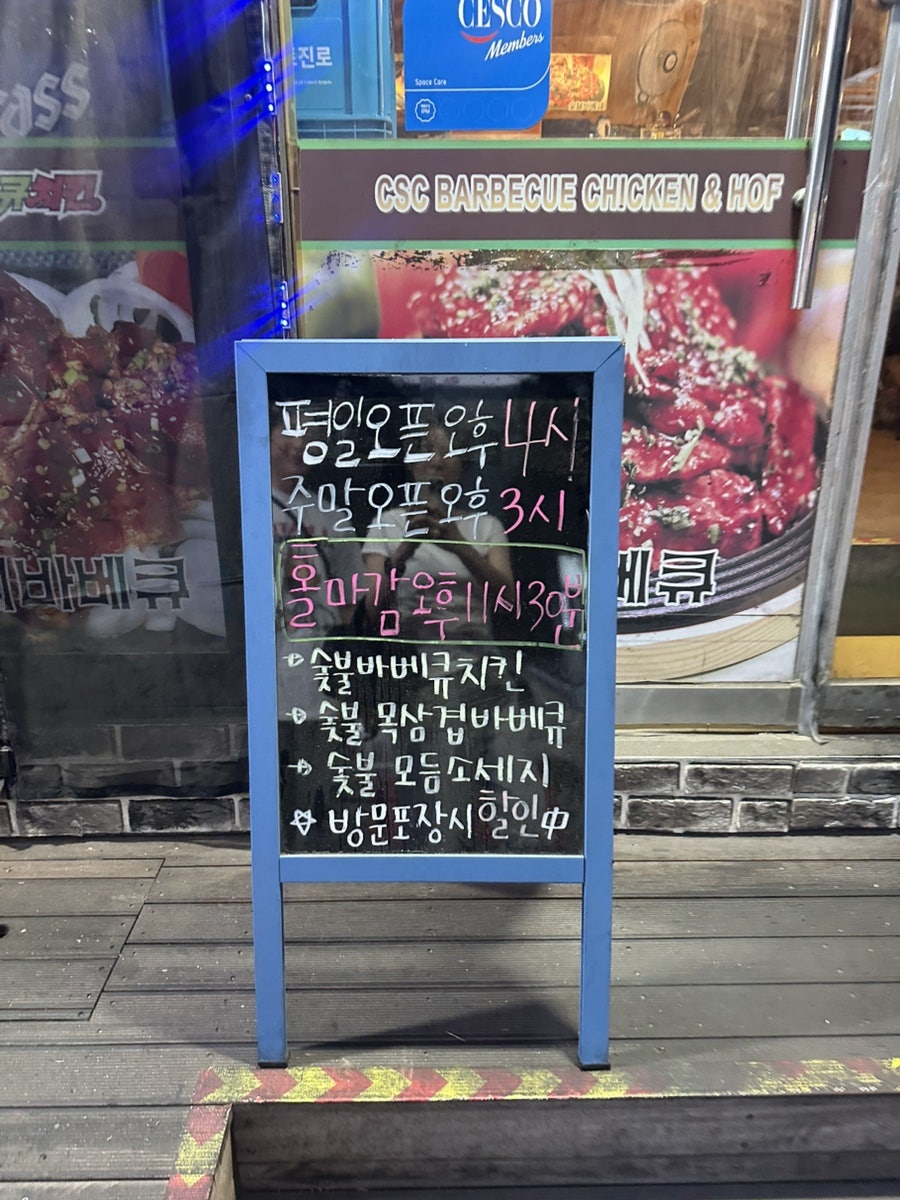 CESCO
Members
Space Care
진로
ass
큐치킨
CSC BARBECUE CHICKEN & HOF
평일오픈 오후 4시
주말오픈 오후 3시
홀마감 오후 11시30분
숯불바베큐치킨
숯불 목삼겹바베큐
숯불 모듬소세지
☆ 방문포장시 할인中
바베큐
베큐